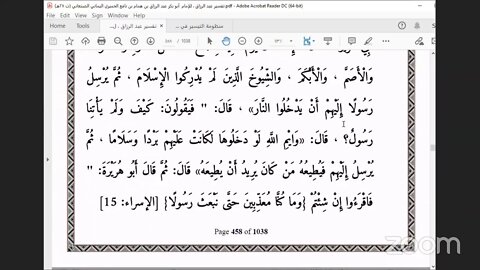 تفسير عبد الرزاق ، للإمام أبو بكر عبد الرزاق بن همام بن نافع الحميري اليماني الصنعاني.pdf - Adobe Acrobat Reader DC (64-bit)
منظومة التيسير في ...
تفسير عبد الرزاق ، ل...
458 / 1038
وَالْأَصَمَّ ، وَالْأَبْكَمَ ، وَالشُّيُوخَ الَّذِينَ لَمْ يُدْرِكُوا الْإِسْلَامَ ، ثُمَّ يُرْسِلُ
رَسُولًا إِلَيْهِمْ أَنْ يَدْخُلُوا النَّارَ» ، قَالَ: " فَيَقُولُونَ: كَيْفَ وَلَمْ يَأْتِنَا
رَسُولٌ؟ ، قَالَ: «وَايْمِ اللَّهِ لَوْ دَخَلُوهَا لَكَانَتْ عَلَيْهِمْ بَرْدًا وَسَلَامًا ، ثُمَّ
يُرْسِلُ إِلَيْهِمْ فَيُطِيعُهُ مَنْ كَانَ يُرِيدُ أَنْ يُطِيعَهُ» قَالَ: ثُمَّ قَالَ أَبُو هُرَيْرَةَ: "
فَاقْرَءُوا إِنْ شِئْتُمْ {وَمَا كُنَّا مُعَذِّبِينَ حَتَّى نَبْعَثَ رَسُولًا} [الإسراء: 15]
Page 458 of 1038
zoom